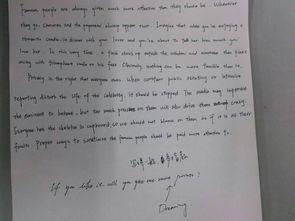 Famous people are always given much more attention than they should be. Wherever
they go, Cameras and the paparazzi always appear soon. Imagine that when you're enjoying a
romantic candle-lit dinner with your lover and you're about to tell her how much you
love her. In this very time, a flash shoots up outside the window and someone flees away
with triumphant smile on his face. Obviously nothing can be more terrible than it.
Privacy is the right that everyone owns. When constant public scrutiny or intensive
reporting disturb the life of the celebrity, it should be stopped. The media may supervise
the eminent to behave, but too much pressure on them will also drive them crazy.
Everyone has the skeleton in cupboard, so we should not blame on them as if it is all their
faults. Proper ways to scrutinize the famous people should be paid more attention to.
If you like it, will you give me some praise?
Dreaming